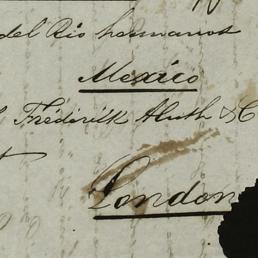 del Rio hermanos
Mexico
Frederik Huth & C
London